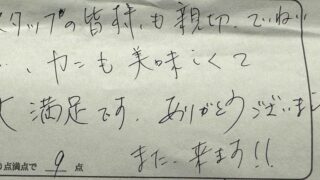 スタッフの皆様も親切、ていねい
、カニも美味しくて
大満足です。ありがとうございまし
また、来ます!!
点満点で 9 点